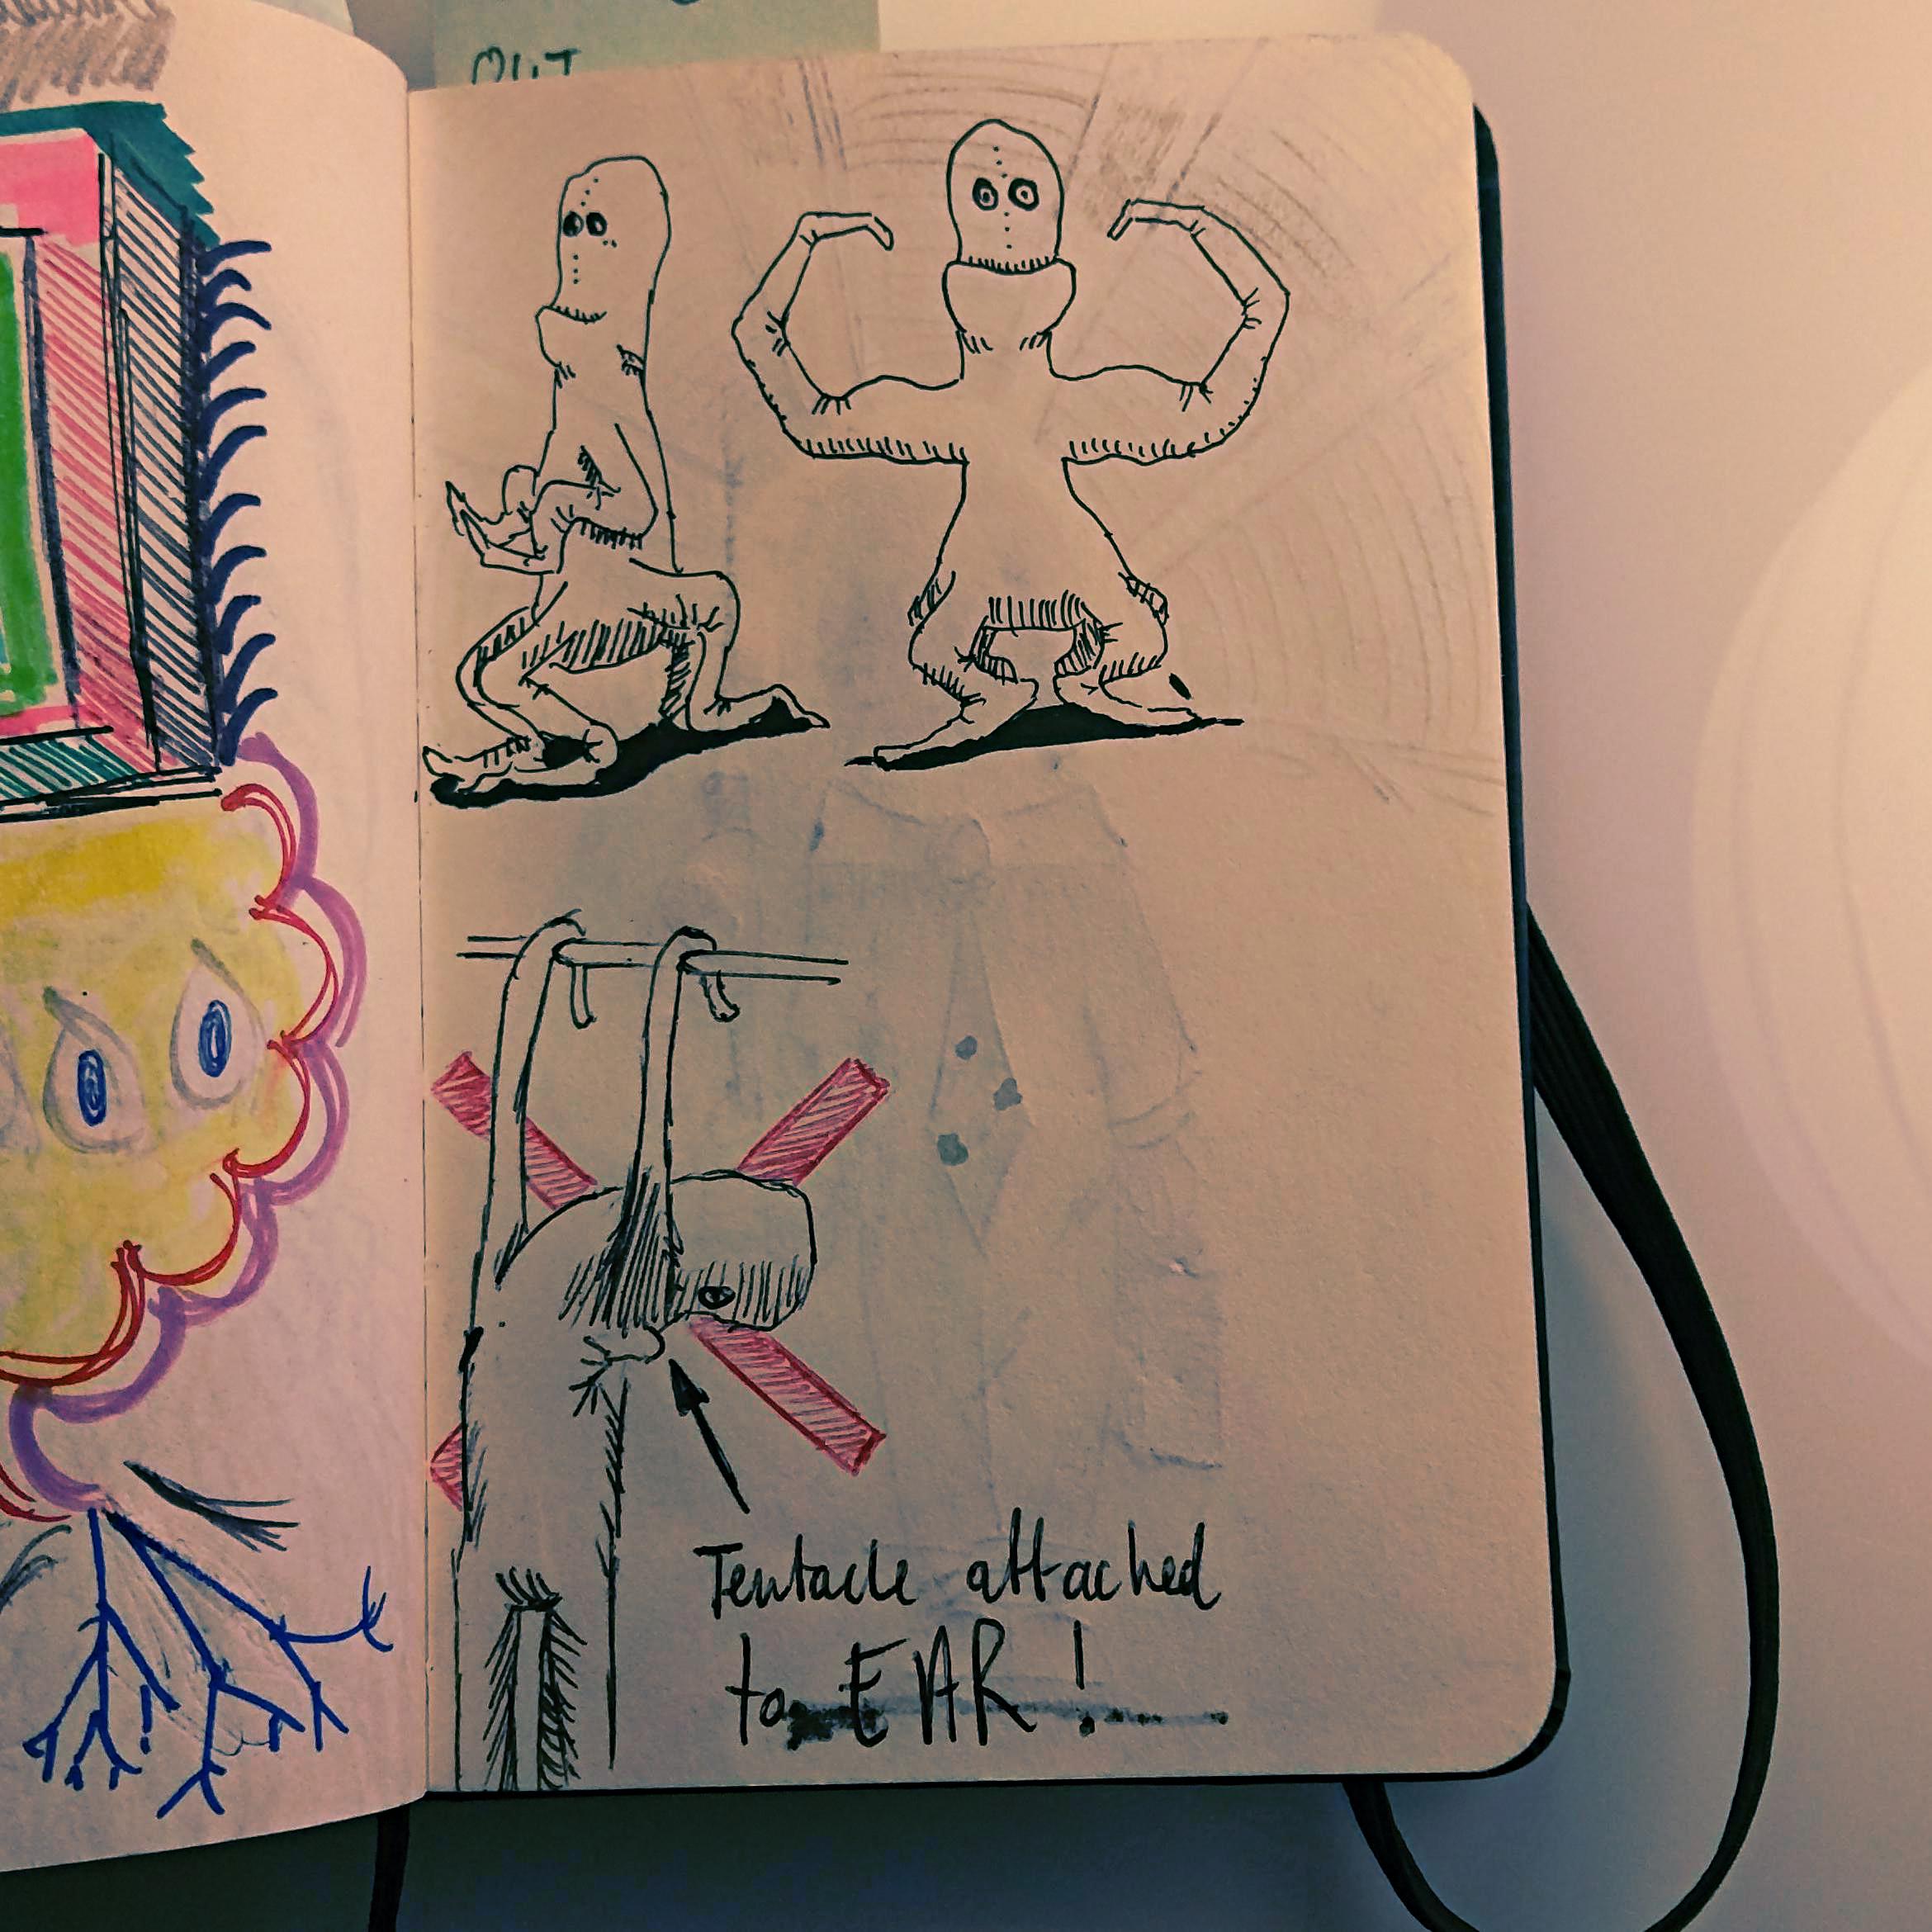 OUT
Tentacle attached
to EAR!